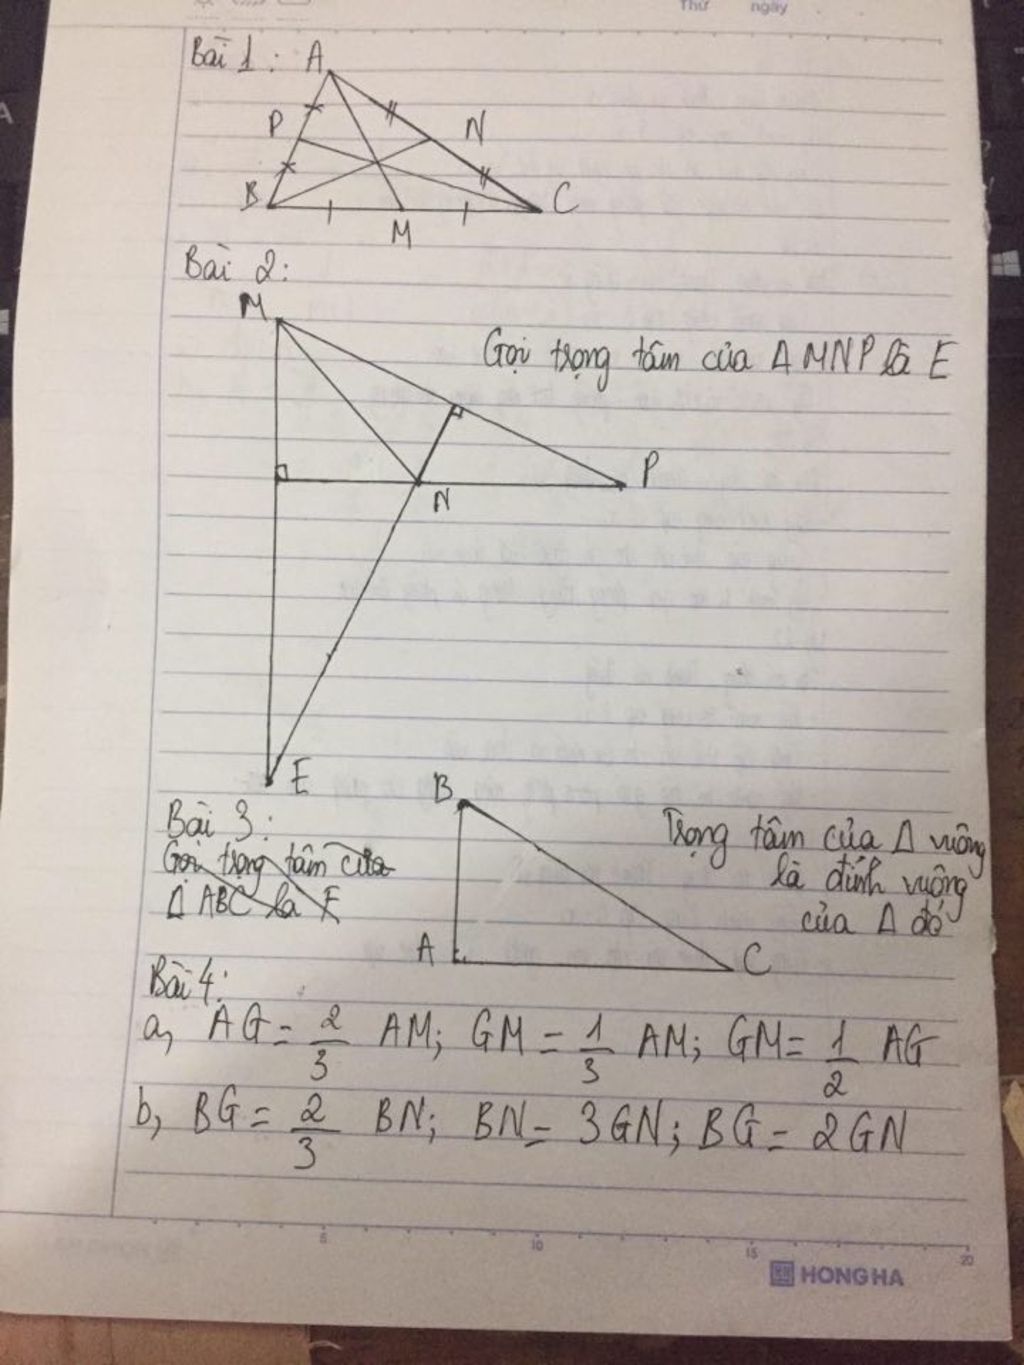 Thứ ngày
Bài 1:
A
P
N
B
C
M
Bài 2:
M
Gọi trọng tâm của Δ MNP là E
P
N
E
B
Bài 3:
Gọi trọng tâm của
Δ ABC là E
Trọng tâm của Δ vuông
là đỉnh vuông
của Δ đó
A
C
Bài 4:
a, AG = 2/3 AM; GM = 1/3 AM; GM = 1/2 AG
b, BG = 2/3 BN; BN = 3GN; BG = 2GN
5 10 15 20
HONG HA